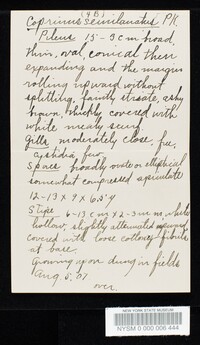 (4B)
Coprinus semilanatus Pk.
Pileus 1.5-3 cm broad,
thin, oval, conical then
expanding and the margin
rolling upward without
splitting, faintly striate, ashy
brown, thickly covered with
white mealy scurf
Gills moderately close, free,
cystidia few
Spores broadly ovate or elliptical
somewhat compressed apiculate
12-13 x 9 x 6.5 y
Stipe 6-13 cm x 2-3 mm, white
hollow, slightly attenuated upward
covered with loose cottony fibrils
at base.
Growing upon dung in fields
Aug 5, 07
over.
NEW YORK STATE MUSEUM
NYSM 0 000 006 444